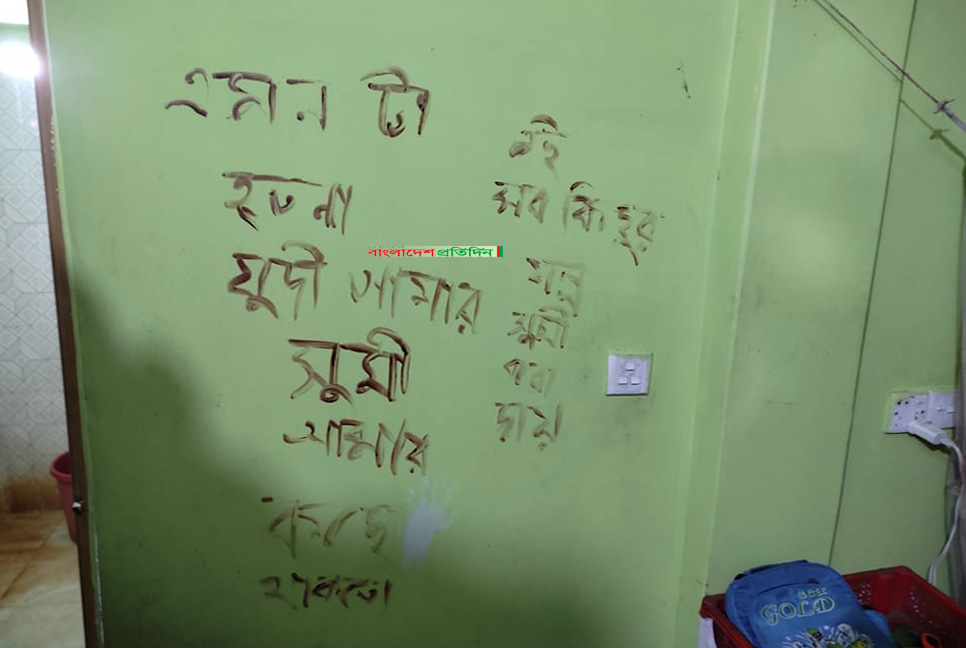 এমন টা
হতনা
যুদী আমার
সুমী
আমার
কাছে
থাকতো
এই
সব কিছুর
জন্ন
সুমী
দায়
বাংলাদেশ প্রতিদিন
GOLD